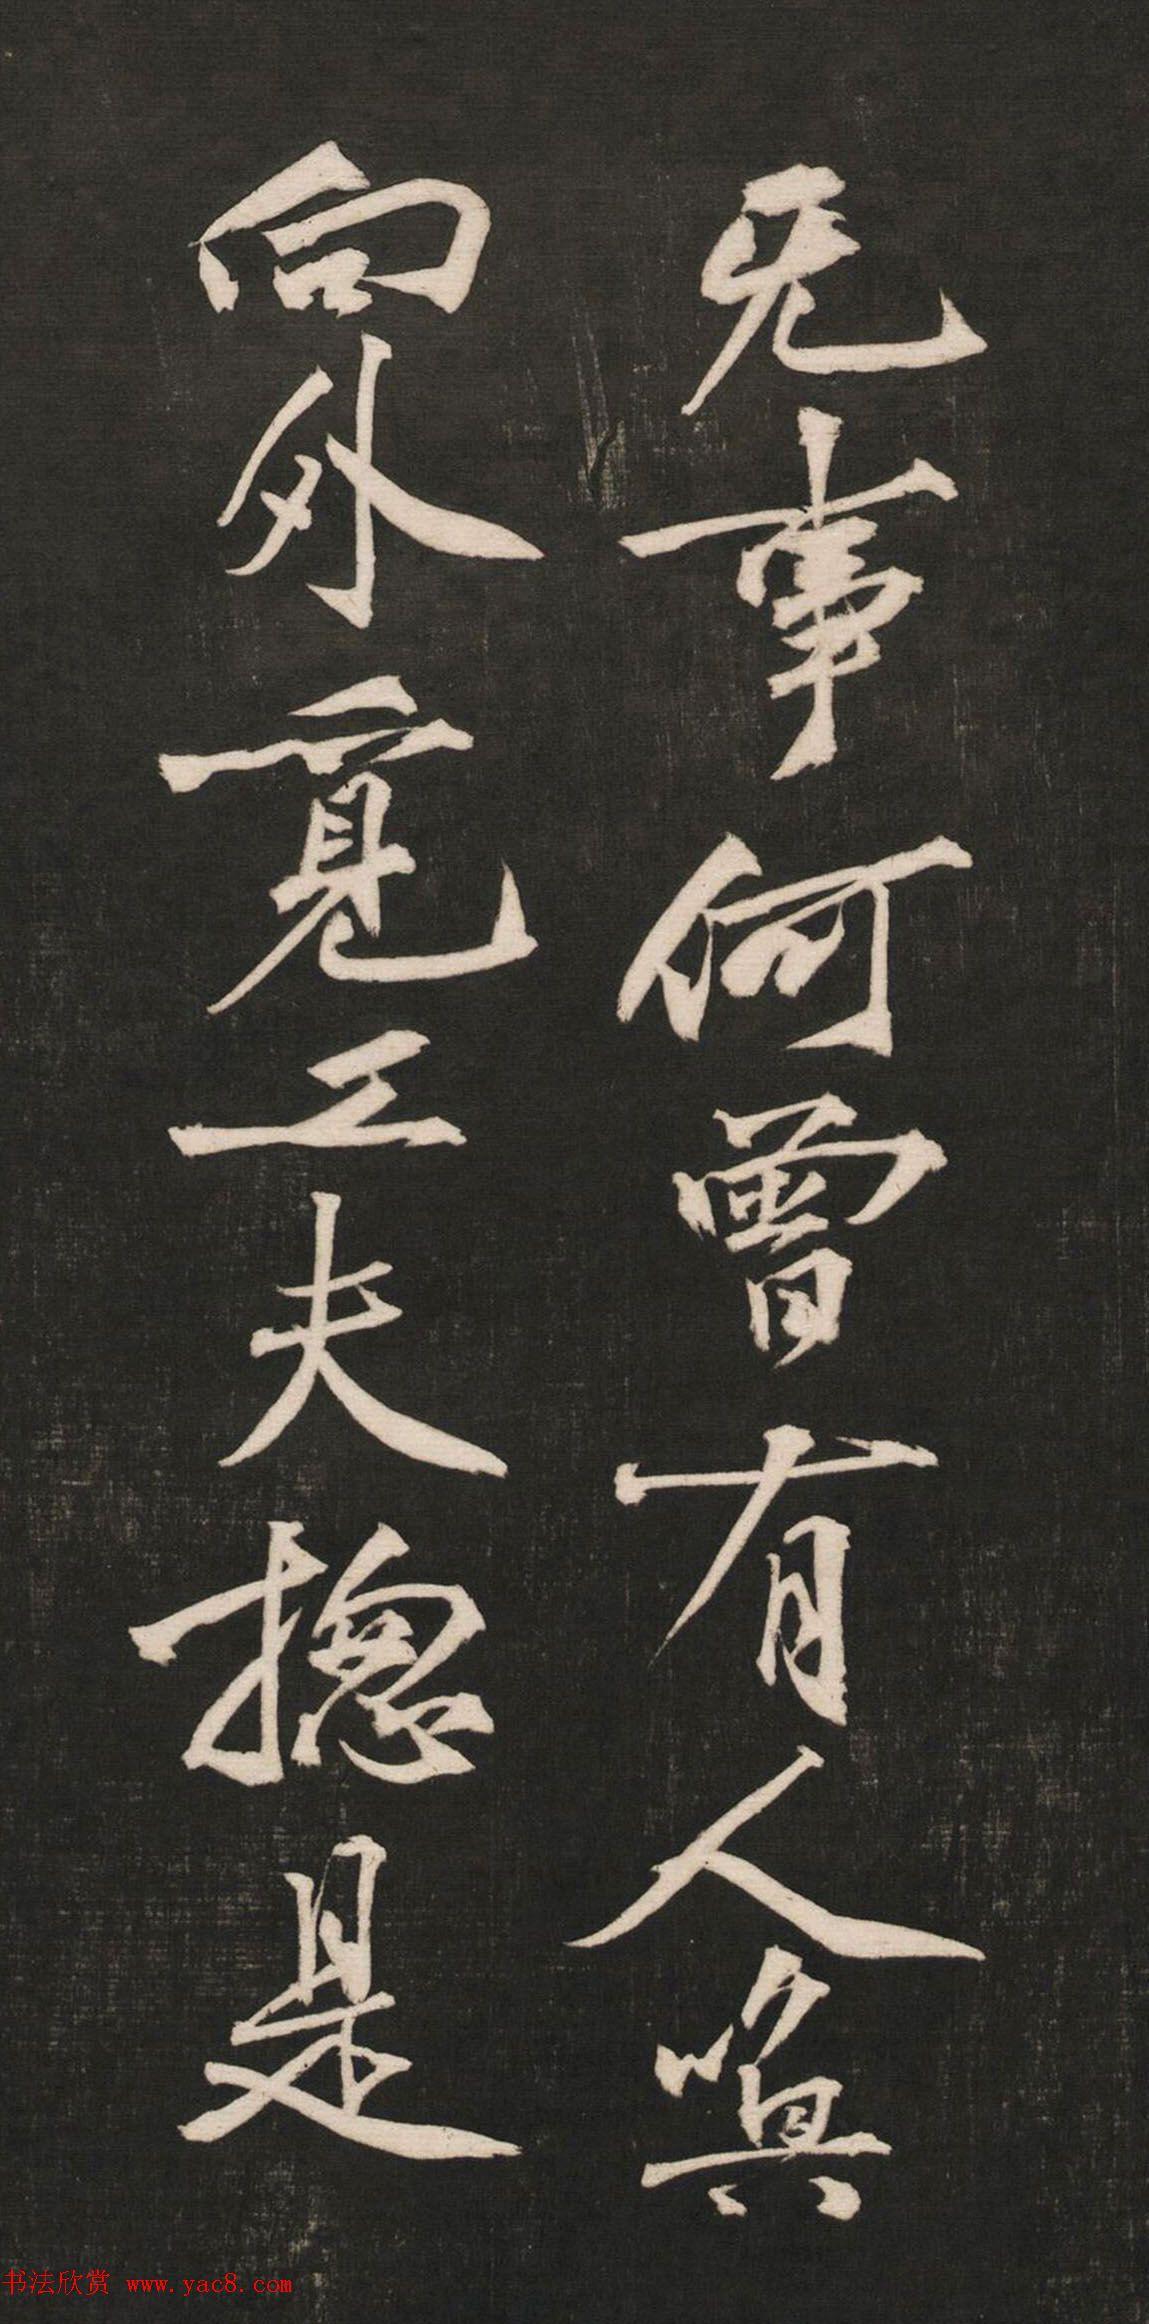 无事何曾有人喚
向外覓工夫摠是
书法欣赏 www.yac8.com